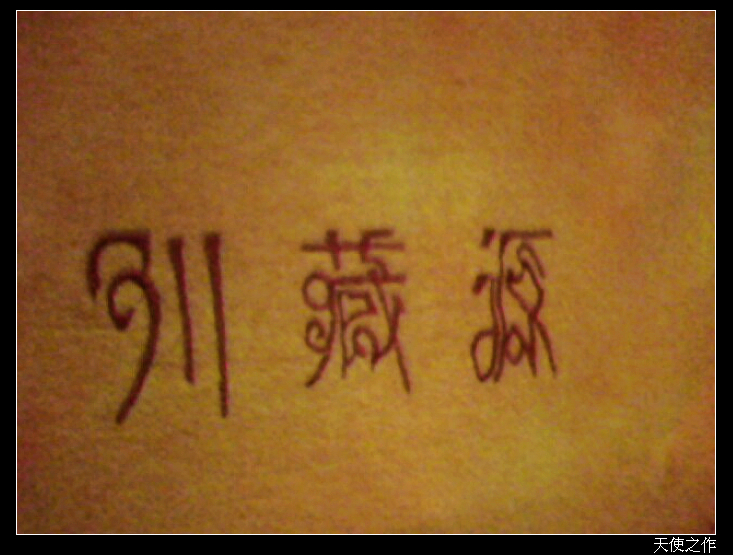 藏源
天使之作